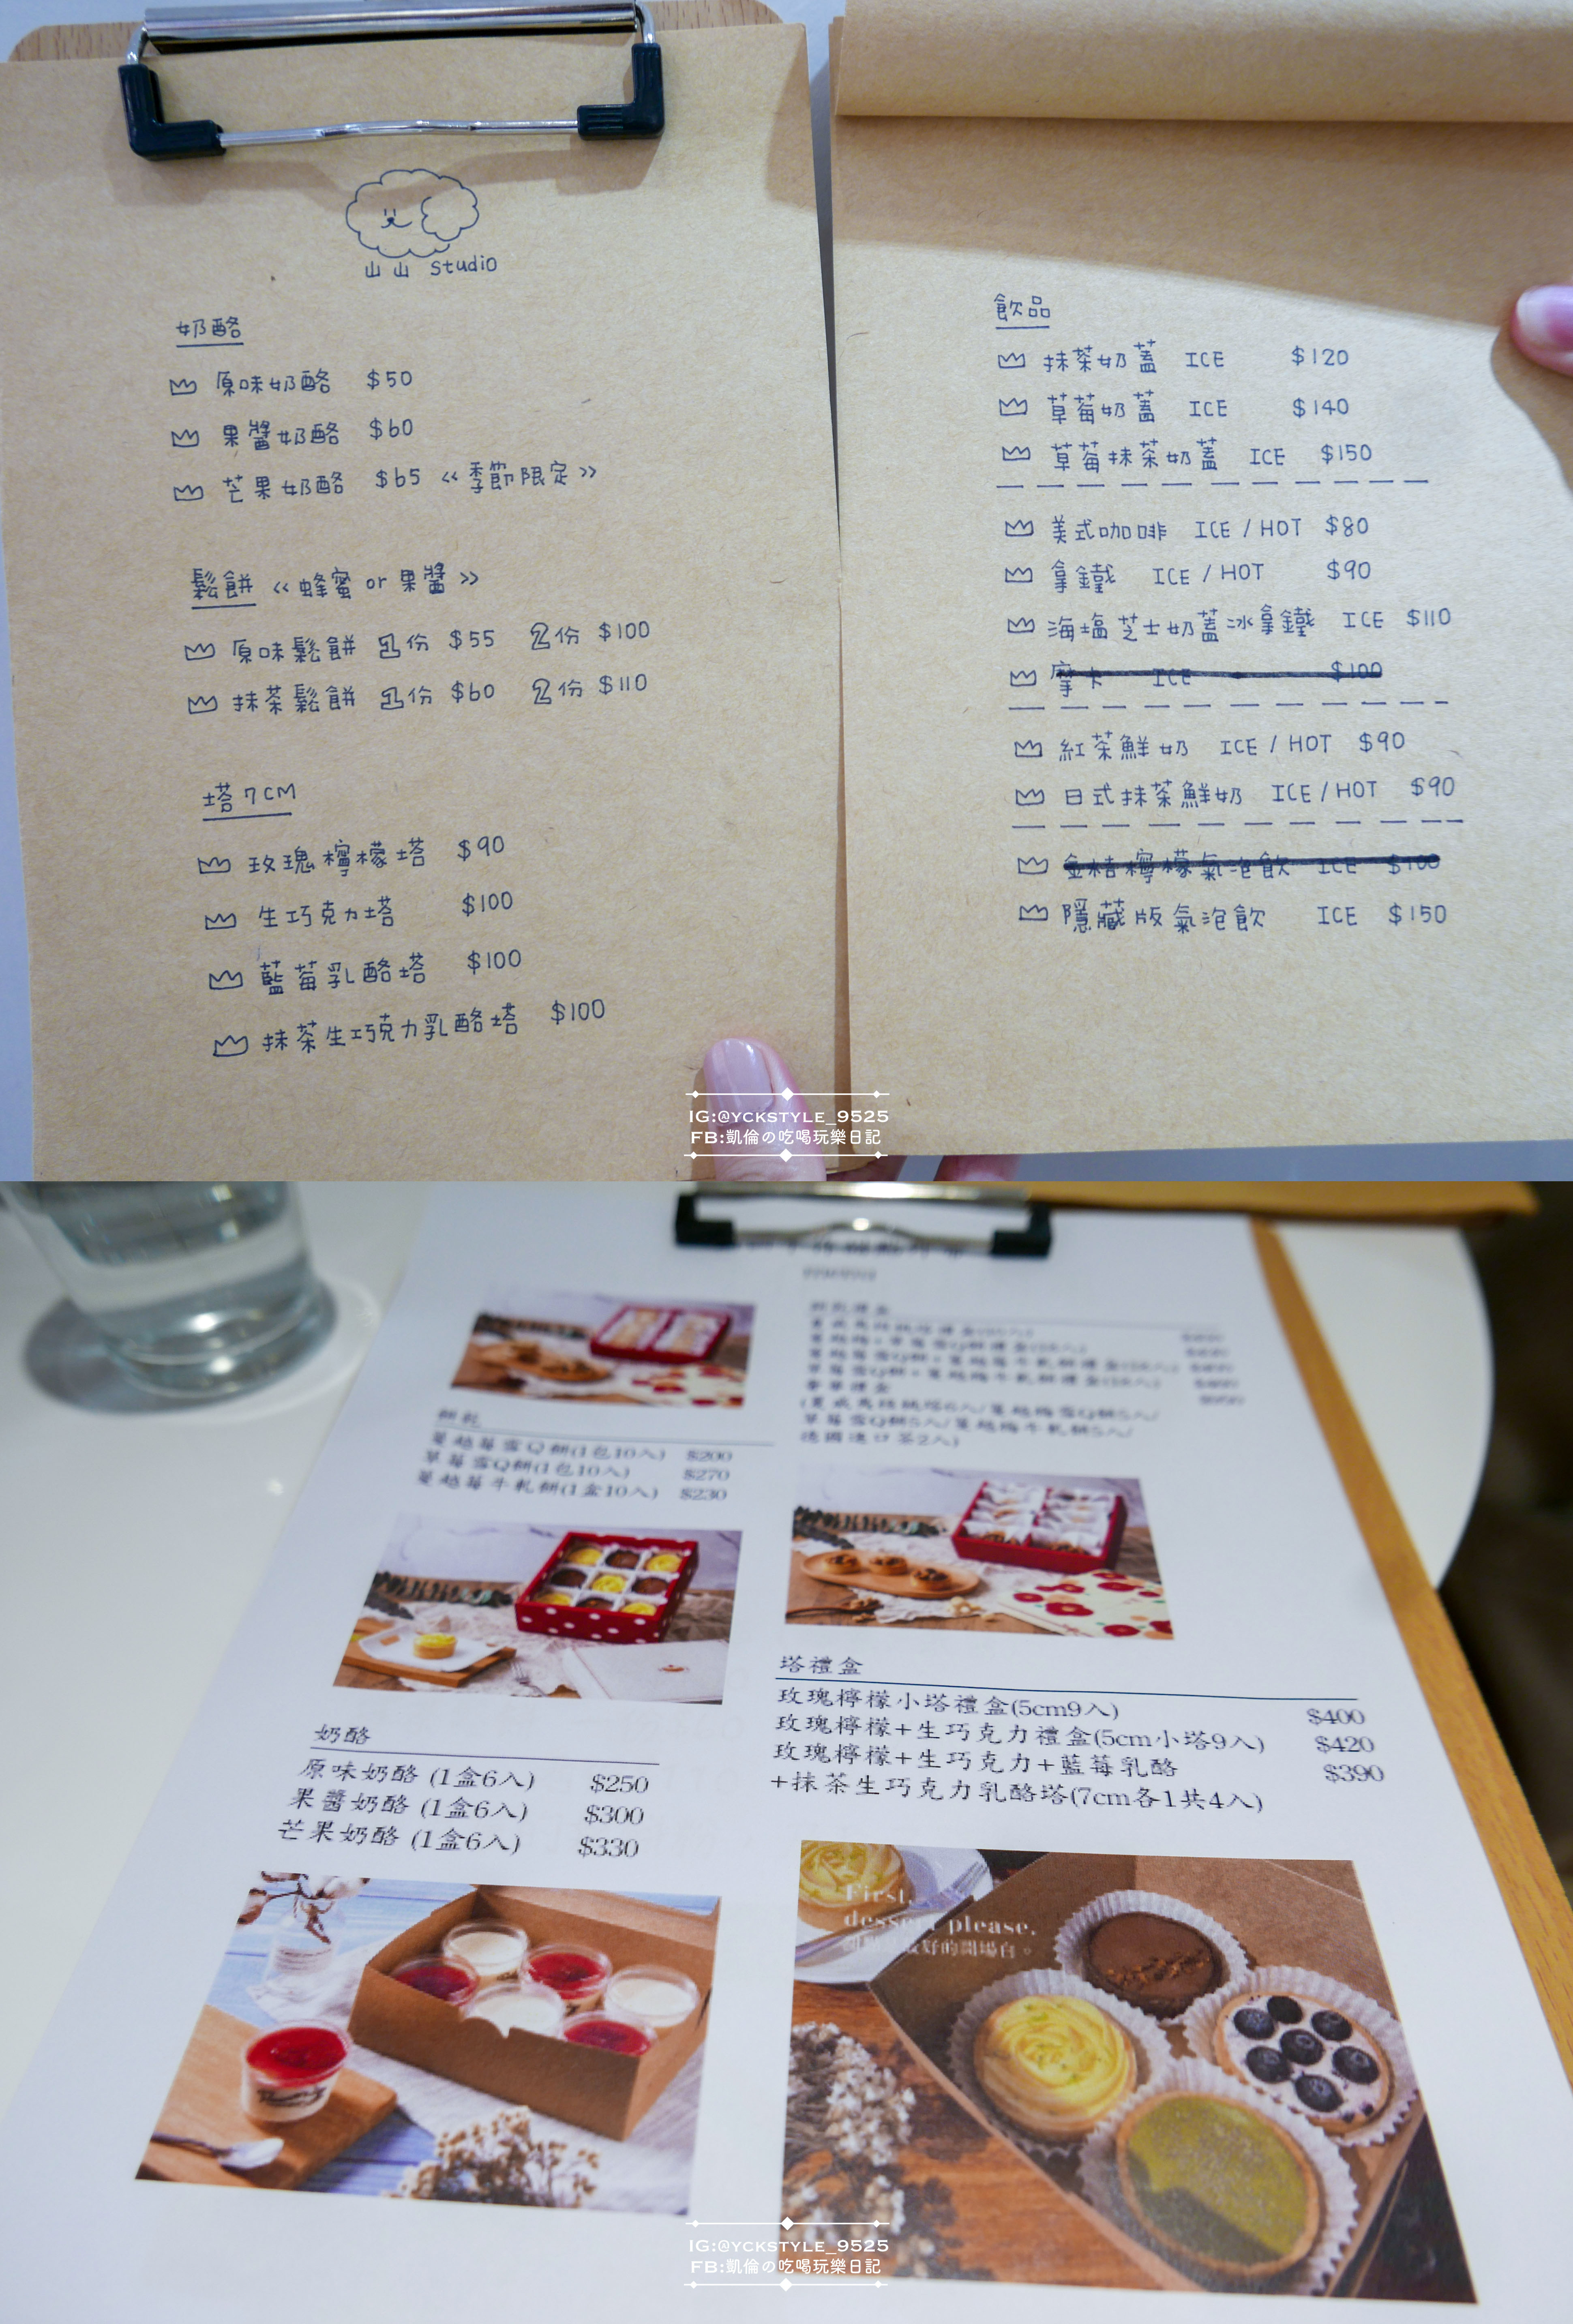 山山 Studio
奶酪
原味奶酪 $50
果醬奶酪 $60
芒果奶酪 $65 《季節限定》
鬆餅 《蜂蜜 or 果醬》
原味鬆餅 1份 $55 2份 $100
抹茶鬆餅 1份 $60 2份 $110
塔 7CM
玫瑰檸檬塔 $90
生巧克力塔 $100
藍莓乳酪塔 $100
抹茶生巧克力乳酪塔 $100
飲品
抹茶奶蓋 ICE $120
草莓奶蓋 ICE $140
草莓抹茶奶蓋 ICE $150
美式咖啡 ICE / HOT $80
拿鐵 ICE / HOT $90
海塩芝士奶蓋冰拿鐵 ICE $110
摩卡 ICE $100
紅茶鮮奶 ICE / HOT $90
日式抹茶鮮奶 ICE / HOT $90
金桔檸檬氣泡飲 ICE $100
隱藏版氣泡飲 ICE $150
IG:@YCKSTYLE_9525
FB:凱倫の吃喝玩樂日記
餅乾
蔓越莓雪Q餅(1包10入) $200
草莓雪Q餅(1包10入) $270
蔓越莓牛軋餅(1盒10入) $230
奶酪
原味奶酪 (1盒6入) $250
果醬奶酪 (1盒6入) $300
芒果奶酪 (1盒6入) $330
塔禮盒
玫瑰檸檬小塔禮盒(5cm9入) $400
玫瑰檸檬+生巧克力禮盒(5cm小塔9入) $420
玫瑰檸檬+生巧克力+藍莓乳酪 $390
+抹茶生巧克力乳酪塔(7cm各1共4入)
First,
dessert please.
最好的開場白。
IG:@YCKSTYLE_9525
FB:凱倫の吃喝玩樂日記